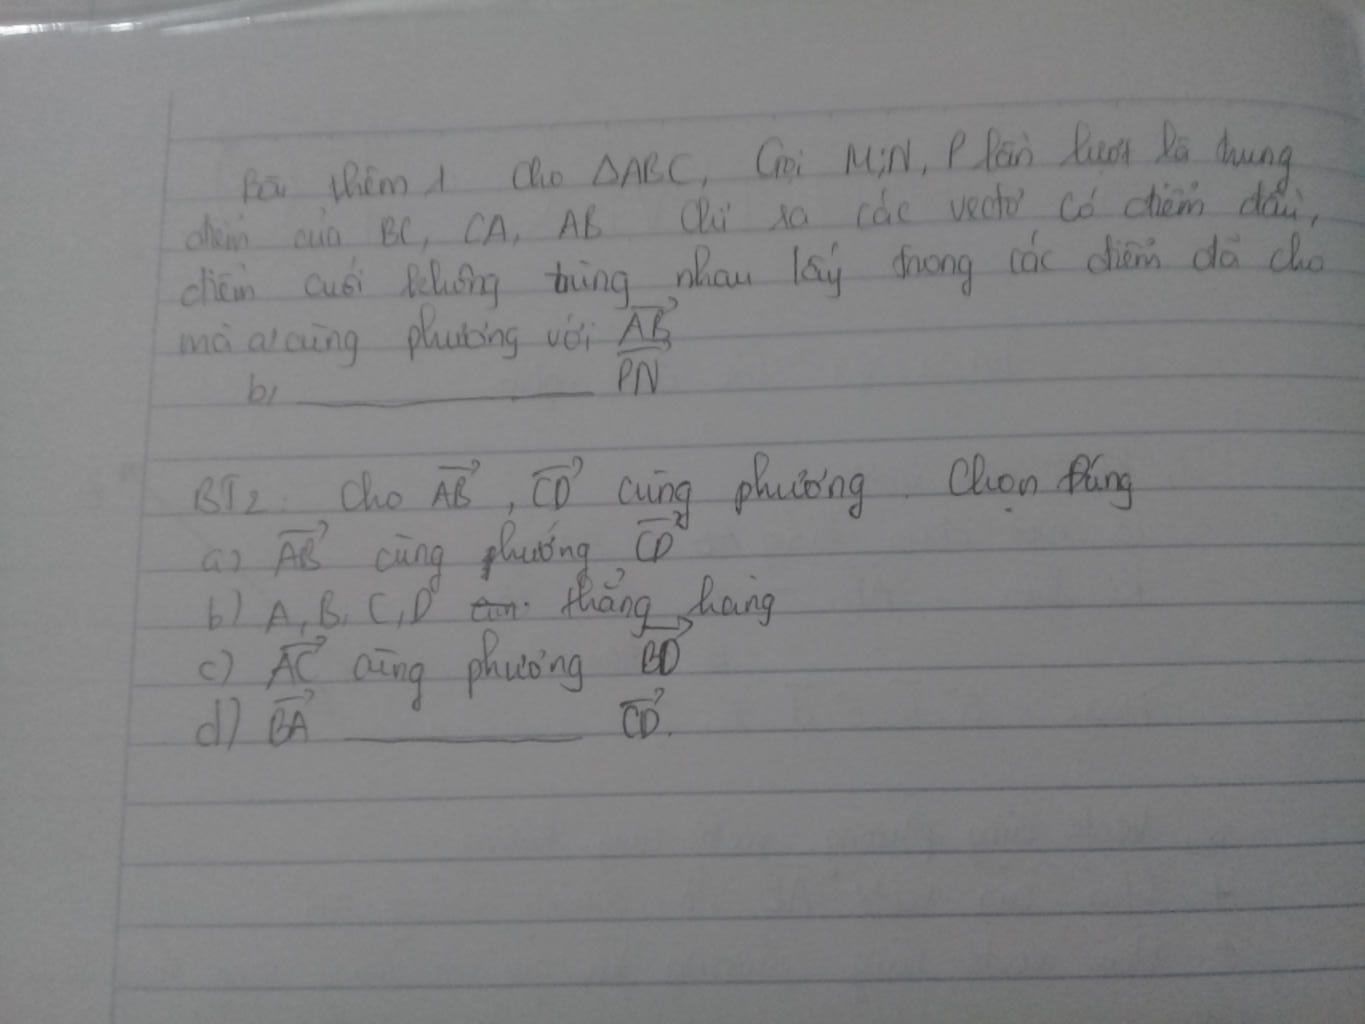 Bài thêm 1 Cho ΔABC, Gọi M;N, P lần lượt là trung
điểm của BC, CA, AB Chỉ ra các vectơ có điểm đầu,
điểm cuối không trùng nhau lấy trong các điểm đã cho
mà a/ cùng phương với AB
b/ ____________ PN
BT2. Cho AB, CD cùng phương. Chọn Đúng
a) AB cùng phướng CD
b) A, B, C, D thẳng hàng
c) AC cùng phương BD
d) BA ____________ CD.